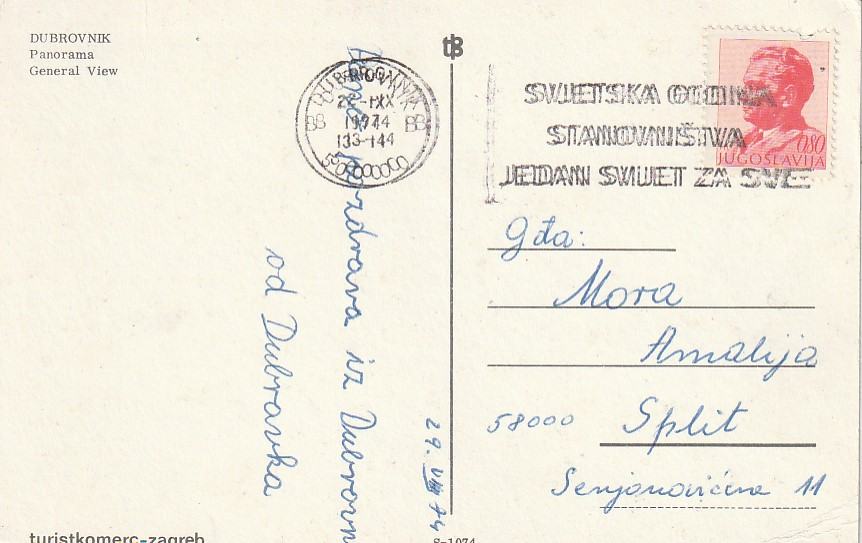 DUBROVNIK
Panorama
General View
DUBROVNIK
1974
50000
SVJETSKA GODINA
STANOVNIŠTVA
JEDAN SVIJET ZA SVE
0.80
JUGOSLAVIJA
pozdrava iz Dubrovn
od Dubravka
29. VIII 74
Gđa:
Mora
Amalija
58000 Split
11
turistkomerc-zagreb
S-1074